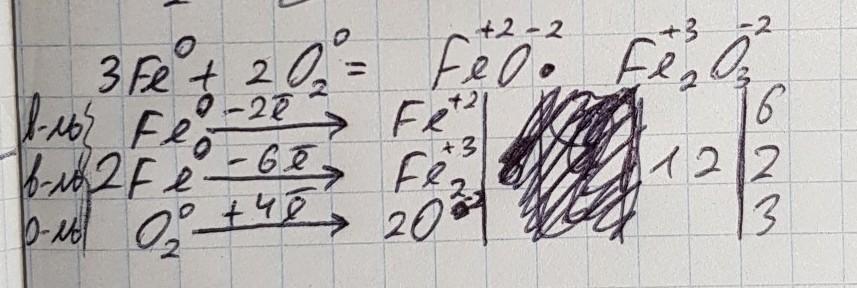 3Fe⁰ + 2O₂⁰ = Fe⁺²O⁻² • Fe₂⁺³O₃⁻²
в-ль Fe⁰ -2ē → Fe⁺² | | 6
в-ль 2Fe⁰ -6ē → Fe₂⁺³ | 12 | 2
о-ль O₂⁰ +4ē → 2O⁻² | | 3